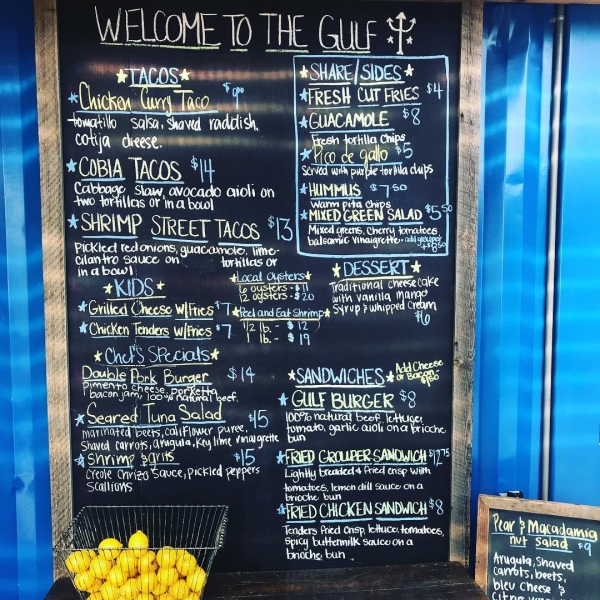 WELCOME TO THE GULF
TACOS
Chicken Curry Taco $9
tomatillo salsa, shaved raddish,
cotija cheese.
COBIA TACOS $14
Cabbage slaw, avocado aioli on
two tortillas or in a bowl
SHRIMP STREET TACOS $13
Pickled red onions, guacamole, lime-
cilantro sauce on tortillas or
in a bowl
KIDS
Grilled Cheese w/Fries $7
Chicken Tenders w/Fries $7
Local Oysters
6 oysters - $11
12 oysters - $20
Peel and Eat Shrimp
1/2 lb. - $12
1 lb. - $19
Chef's Specials
Double Pork Burger $14
pimento cheese, porketta
bacon jam, 100% natural beef.
Seared Tuna Salad $15
marinated beets, califlower puree,
Shaved carrots, arugula, key lime vinaigrette
Shrimp & grits $15
Creole Chrizo Sauce, pickled peppers
scallions
SHARE/SIDES
FRESH CUT FRIES $4
GUACAMOLE $8
Fresh tortilla chips
Pico de gallo $5
Served with purple tortilla chips
HUMMUS $7.50
Warm pita chips
MIXED GREEN SALAD $5.50
Mixed greens, cherry tomatoes,
balsamic vinaigrette - add grouper
DESSERT
Traditional cheesecake
with vanilla mango
Syrup & whipped cream
$6
SANDWICHES
Add Cheese
or Bacon -
$1.50
GULF BURGER $8
100% natural beef, lettuce,
tomato, garlic aioli on a brioche
bun
FRIED GROUPER SANDWICH $12.75
Lightly breaded & fried crisp with
tomatoes, lemon dill sauce on a
brioche bun
FRIED CHICKEN SANDWICH $8
Tenders fried crisp, lettuce, tomatoes,
spicy buttermilk sauce on a
brioche bun
Pear & Macadamia
nut salad $9
Arugula, Shaved
carrots, beets,
bleu cheese &